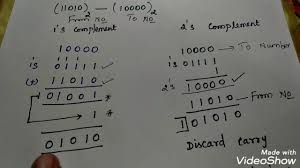 (11010)₂ — (10000)₂
From No To No
1's Complement
10000
1's 01111
(+) 11010
01001
1
01010
2's Complement
10000 → To Number
1's 01111
1
2's 10000
11010 → From No
1 01010
Discard carry
Made with
VideoShow